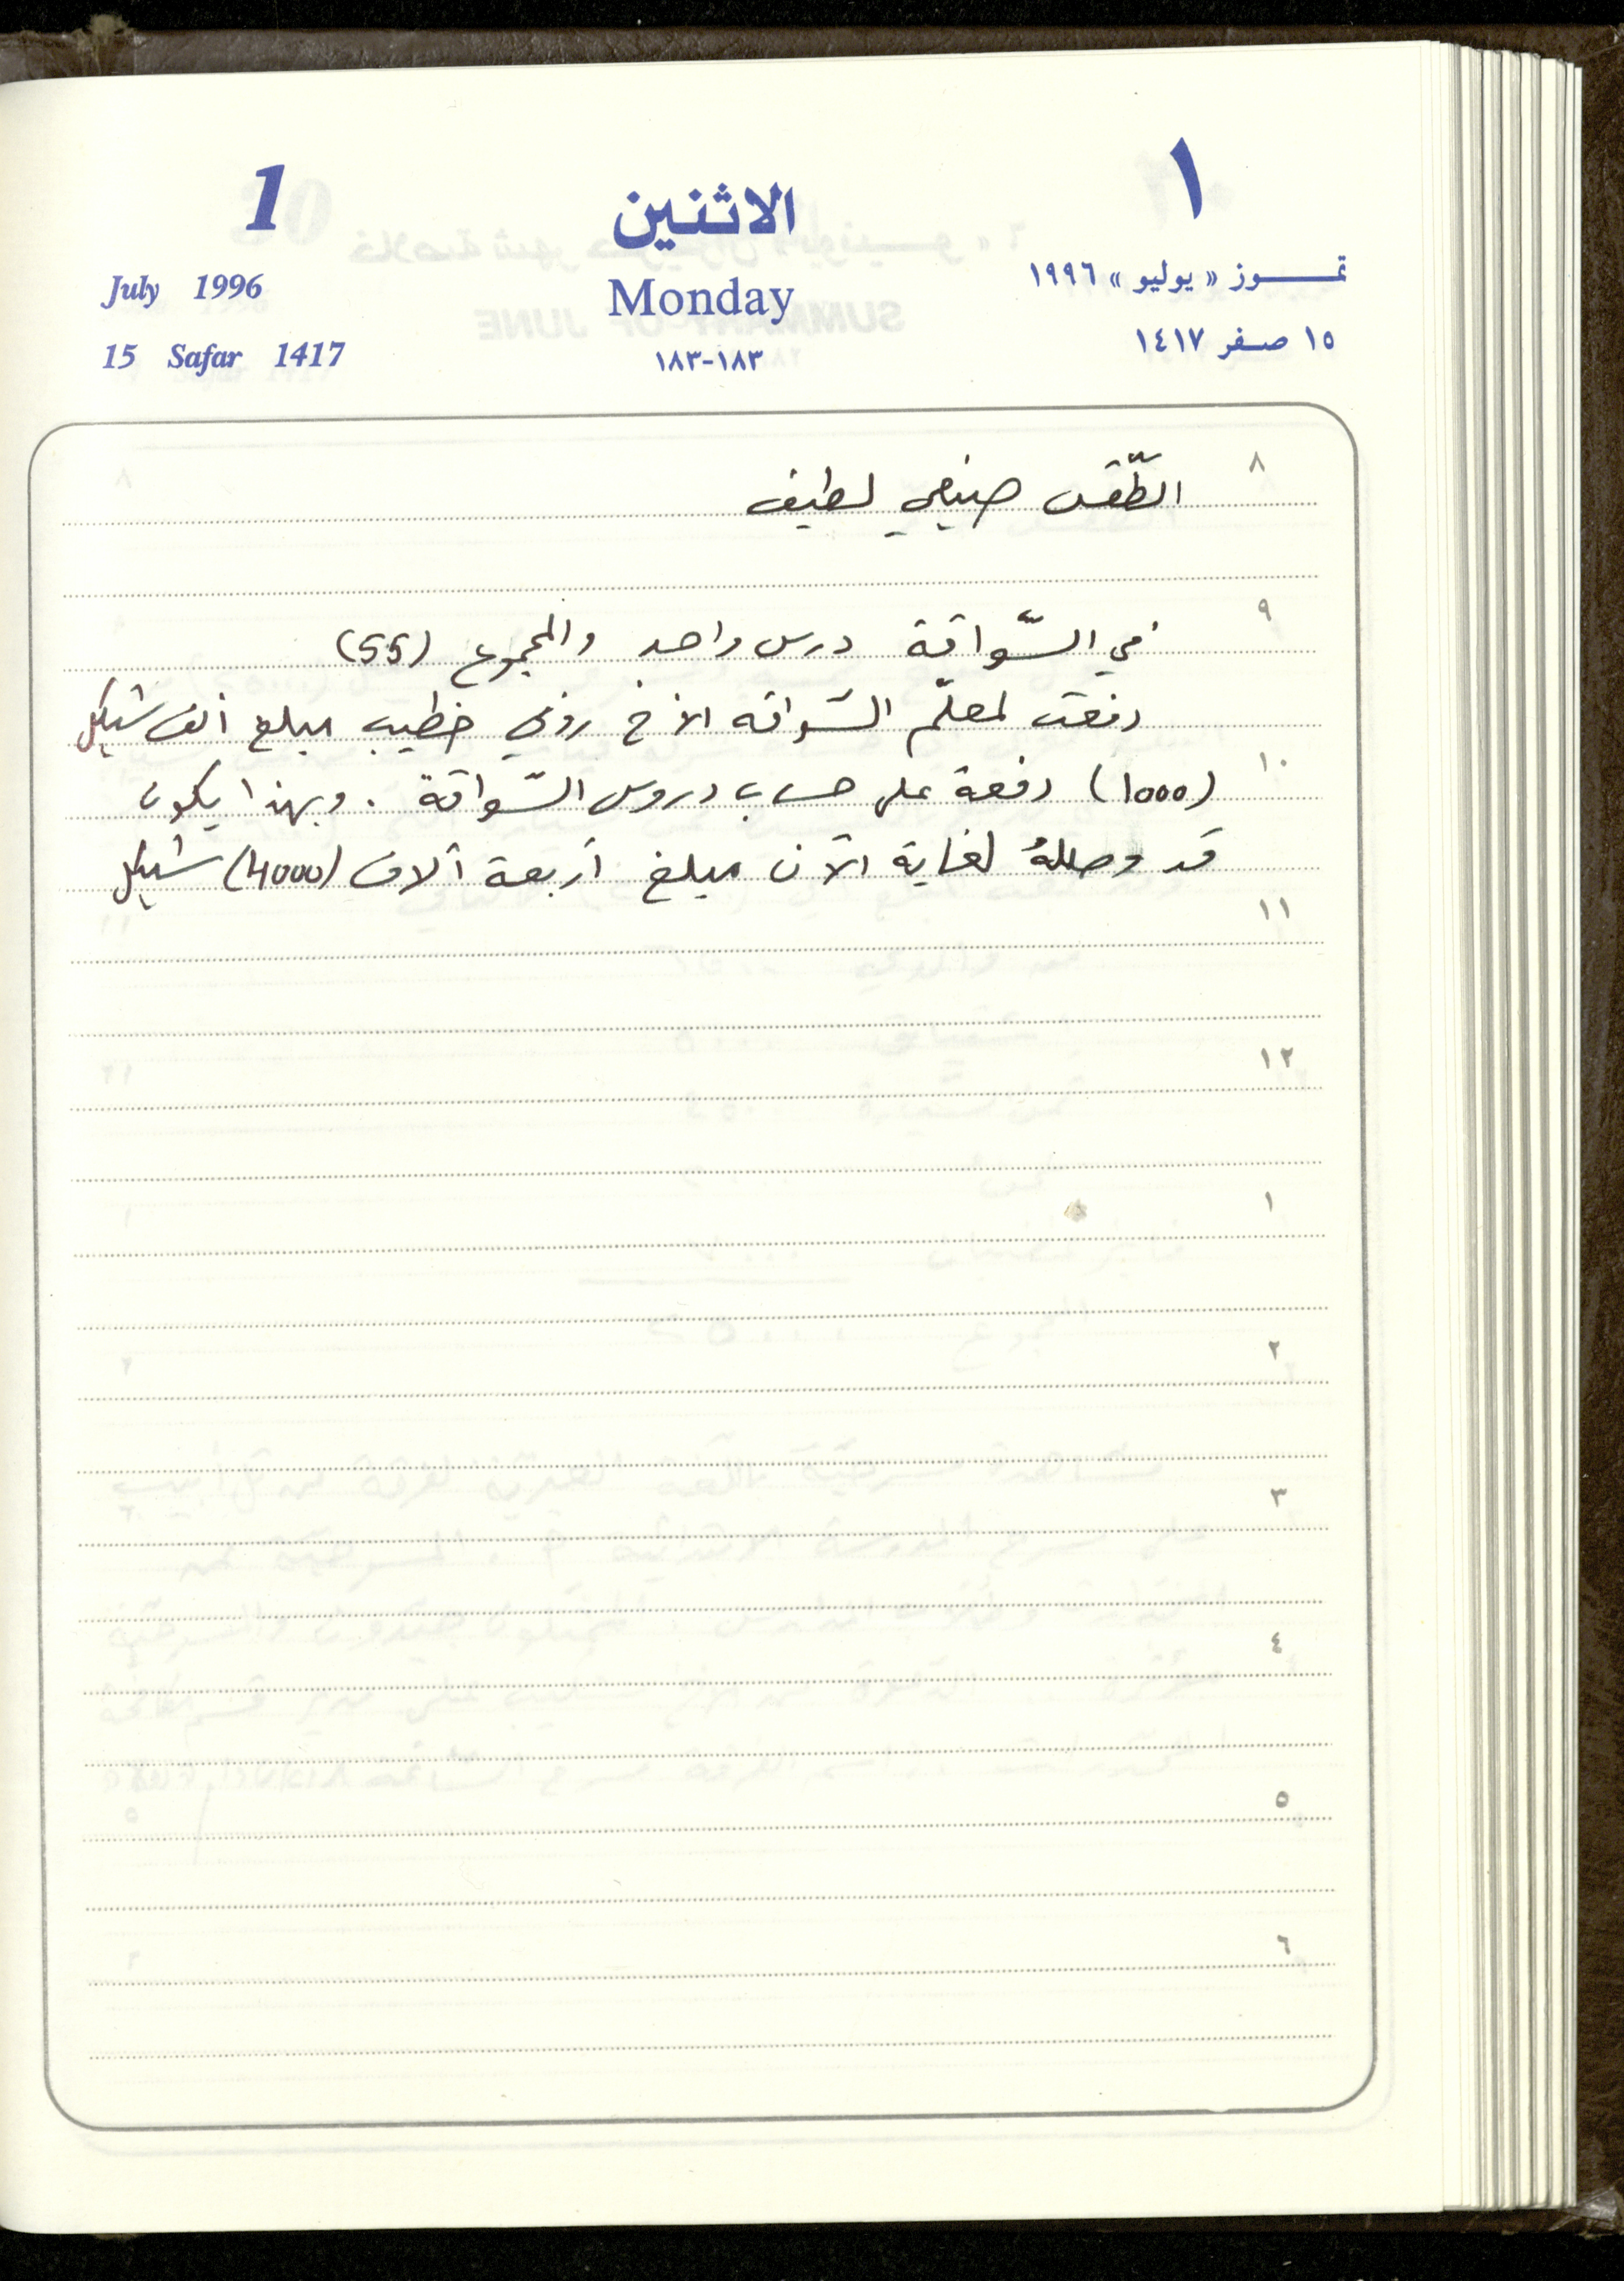 1
الاثنين
١
July 1996
Monday
تمـــوز « يوليو » ١٩٩٦
15 Safar 1417
١٨٣-١٨٣
١٥ صفر ١٤١٧
٨
الطّقس صيفي لطيف
٩
في السّواقة درس واحد والمجموع (55)
دفعت لمعلّم السّواقه الأخ روني خطيب مبلغ ألف شيكل
١٠
(1000) دفعة على حساب دروس السّواقة . وبهذا يكون
قد وصلهُ لغاية الآن مبلغ أربعة آلاف (4000) شيكل
١١
١٢
١
٢
٣
٤
٥
٦